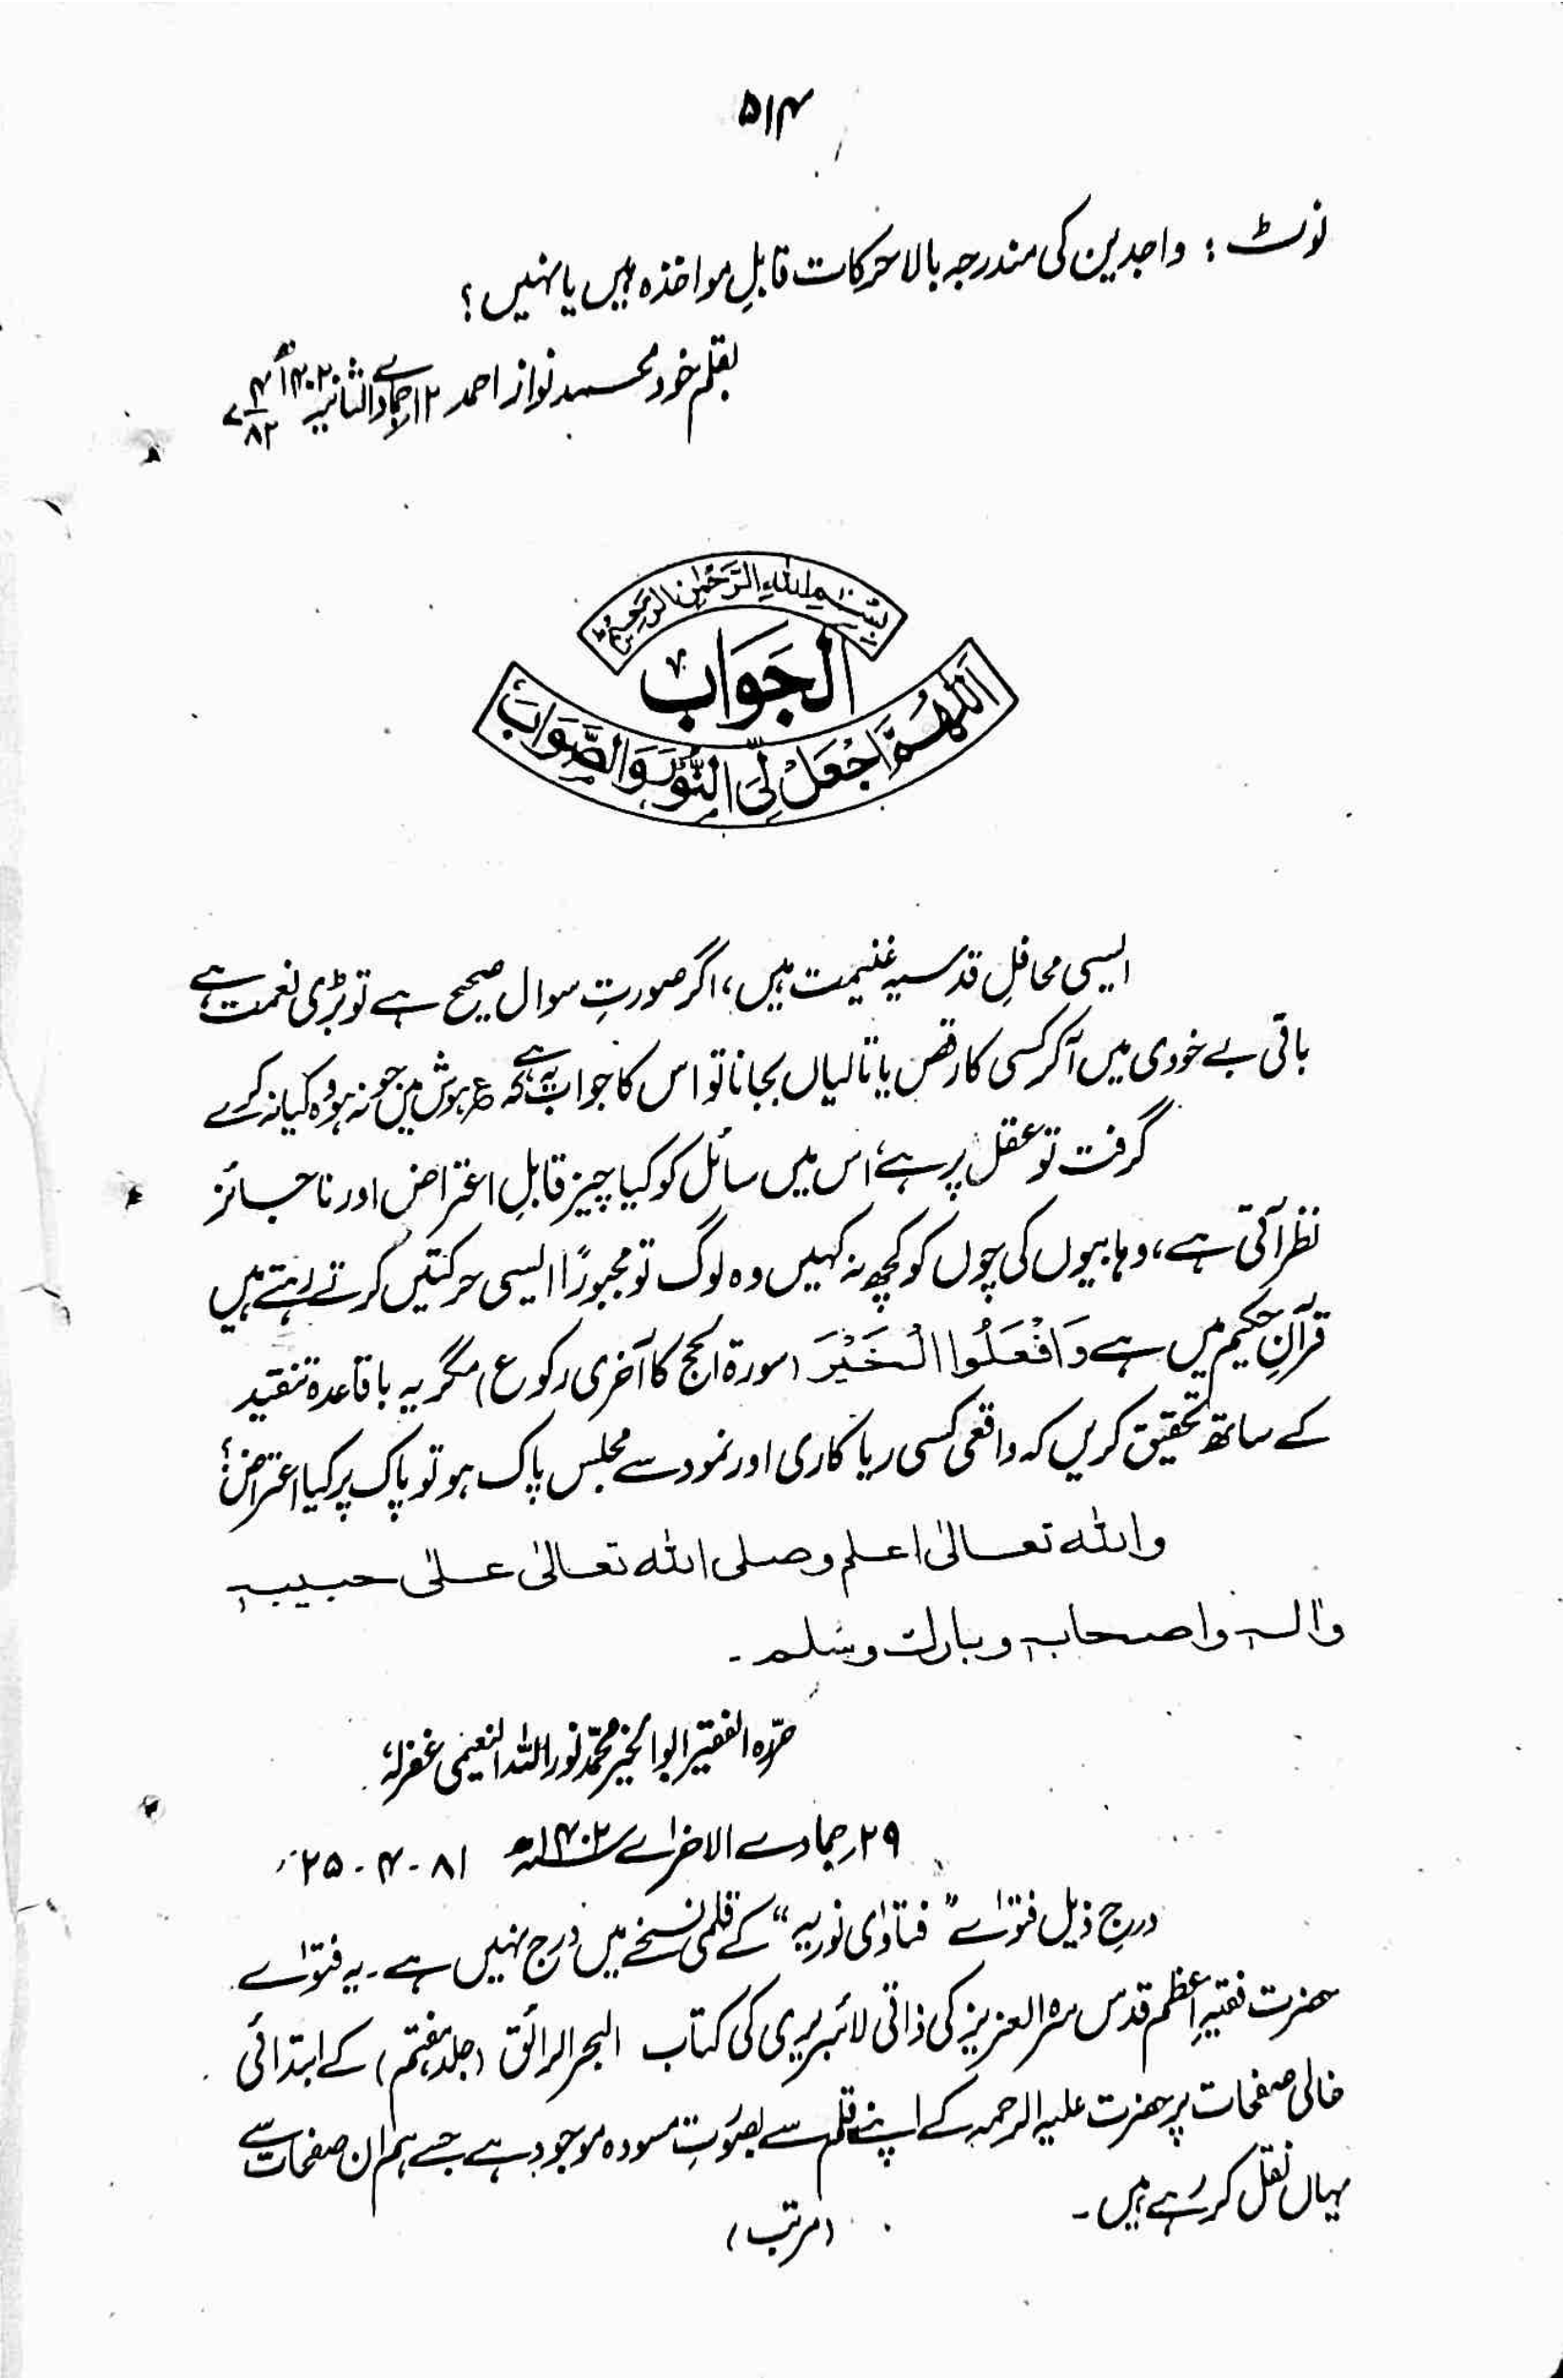 ۵۱۴
نوٹ : واجدین کی مندرجہ بالا حرکات قابلِ مواخذہ ہیں یا نہیں ؟
بقلم خود محمد نواز احمد ۱۲ جمادے الثانیہ ۱۴۰۲ھ
بِسْمِ اللهِ الرَّحْمٰنِ الرَّحِيْمِ
الجَوَابُ
اَللّٰهُمَّ اجْعَلْ لِّيَ النُّوْرَ وَالصَّوَابَ
ایسی محافلِ قدسیہ غنیمت ہیں، اگر صورتِ سوال صحیح ہے تو بڑی نعمت ہے
باقی بے خودی میں آکر کسی کا رقص یا تالیاں بجانا تو اس کا جواب یہ ہے کہ ع ہوش میں جو نہ ہو وہ کیا نہ کرے
گرفت تو عقل پر ہے، اس میں سائل کو کیا چیز قابلِ اعتراض اور ناجائز
نظر آتی ہے، وہابیوں کی چوں کو کچھ نہ کہیں وہ لوگ تو مجبوراً ایسی حرکتیں کرتے رہتے ہیں
قرآنِ حکیم میں ہے وَافْعَلُوا الْخَيْرَ (سورۃ الحج کا آخری رکوع) مگر یہ باقاعدہ تنقید
کے ساتھ تحقیق کریں کہ واقعی کسی ریاکاری اور نمود سے مجلس پاک ہو تو پاک پر کیا اعتراض؟
والله تعالیٰ اعلم وصلی الله تعالیٰ علیٰ حبیبہٖ
واٰلہٖ واصحابہٖ وبارك وسلم ۔
حرّرہ الفقیر ابوالخیر محمّد نوراللہ النعیمی غفرلہٗ
۲۹ جمادے الاخرٰے ۱۴۰۲ھ ۸۱ - ۴ - ۲۵
درجِ ذیل فتوٰے "فتاوٰی نوریہ" کے قلمی نسخے میں درج نہیں ہے ۔ یہ فتوٰے
حضرت فقیہِ اعظم قدس سرہ العزیز کی ذاتی لائبریری کی کتاب البحر الرائق (جلد ہفتم) کے ابتدائی
خالی صفحات پر حضرت علیہ الرحمہ کے اپنے قلم سے بصورتِ مسودہ موجود ہے جسے ہم ان صفحات سے
یہاں نقل کر رہے ہیں ۔ (مرتب)